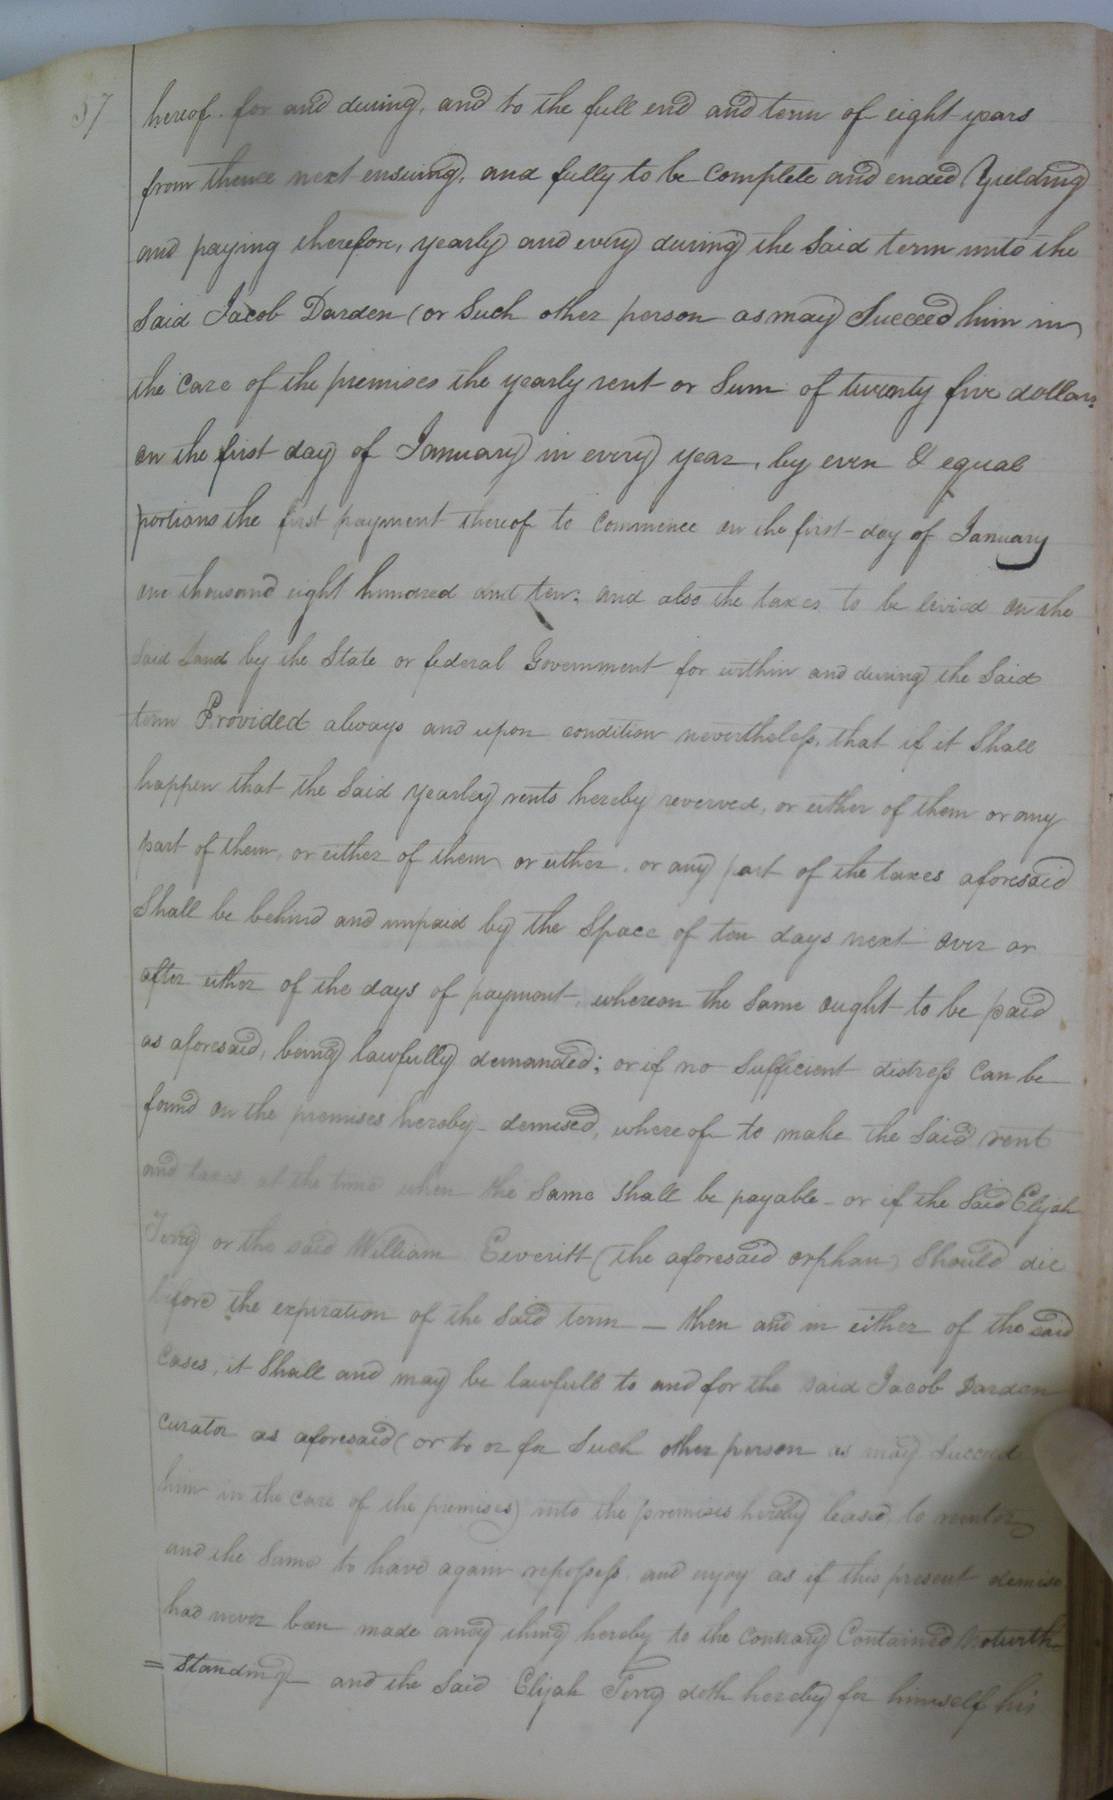 57
hereof. for and during, and to the full end and term of eight years
from thence next ensuing, and fully to be complete and ended Yielding
and paying therefore, yearly and every during the said term unto the
Said Jacob Darden (or Such other person as may Succeed him in
the care of the premises the yearly rent or Sum of twenty five dollars
on the first day of January in every year, by even & equal
portions the first payment thereof to commence on the first day of January
one thousand eight hundred and ten; and also the taxes to be levied on the
Said Land by the State or federal Government for within and during the Said
term Provided always and upon condition nevertheless, that if it Shall
happen that the Said Yearley rents hereby reserved, or either of them or any
part of them, or either of them or either, or any part of the taxes aforesaid
Shall be behind and unpaid by the Space of ten days next over or
after either of the days of payment, whereon the Same ought to be paid
as aforesaid, being lawfully demanded; or if no Sufficient distress can be
found on the premises hereby demised, whereof to make the Said rent
and taxes at the time when the Same shall be payable or if the Said Elijah
Terry or the said William Eeveritt (the aforesaid orphan) Should die
before the expiration of the Said term — then and in either of the said
cases, it Shall and may be lawfull to and for the said Jacob Darden
curator as aforesaid (or to or for Such other person as may Succeed
him in the care of the premises) into the premises hereby leased, to reenter
and the Same to have again repossess and enjoy as if this present demise
had never been made any thing hereby to the Contrary Contained Notwith
= standing and the Said Elijah Terry doth hereby for himself his